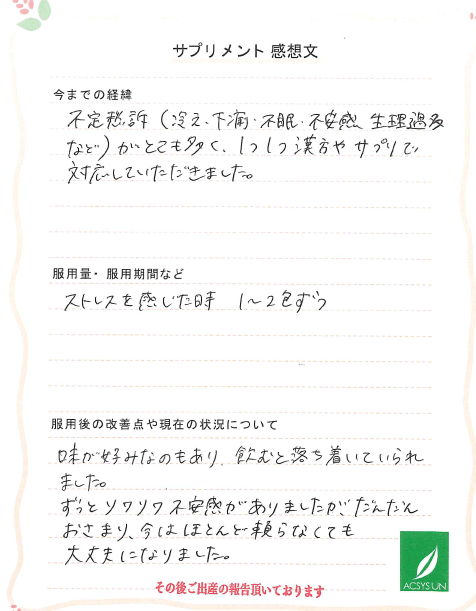 サプリメント 感想文
今までの経緯
不定愁訴（冷え・下痛・不眠・不安感、生理過多
など）がとても多く、1つ1つ漢方や サプリで
対応していただきました。
服用量・服用期間など
ストレスを感じた時 1〜2包ずつ
服用後の改善点や現在の状況について
味が好みなのもあり、飲むと落ち着いていられ
ました。
ずっとソワソワ不安感がありましたが、だんだん
おさまり、今はほとんど頼らなくても
大丈夫になりました。
その後ご出産の報告頂いております
ACSYSUN